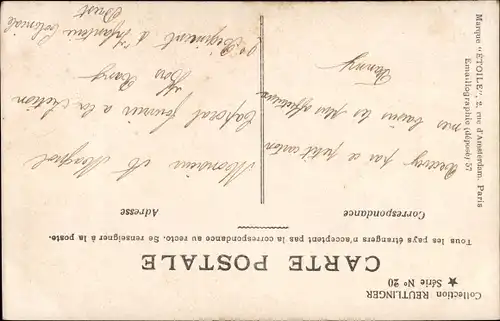 Collection REUTLINGER
★ Série No 20
CARTE POSTALE
Tous les pays étrangers n'acceptent pas la correspondance au recto. Se renseigner à la poste.
Correspondance
Adresse
Recevez par ce petit carton
mes baisers les plus affectueux
Fanny
Monsieur A. Magnol
Caporal fourrier a la Section
Hors Rang
2e Régiment d'Infanterie Coloniale
Brest
Marque "ÉTOILE", 2, rue d'Amsterdam, Paris
Émaillographie (déposé) 57